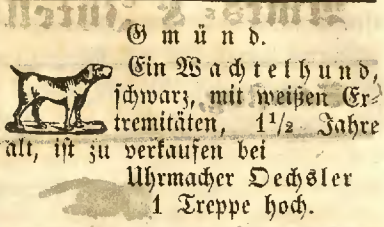 Gmünd.
Ein Wachtelhund,
schwarz, mit weißen Ex-
tremitäten, 1 1/2 Jahre
alt, ist zu verkaufen bei
Uhrmacher Oechsler
1 Treppe hoch.